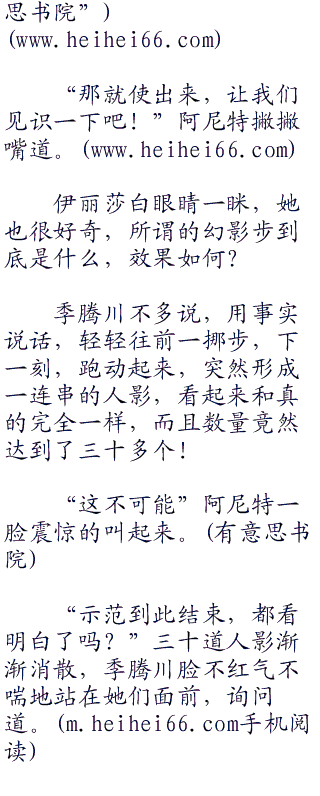 思书院”)
(www.heihei66.com)
“那就使出来，让我们
见识一下吧！”阿尼特撇撇
嘴道。(www.heihei66.com)
伊丽莎白眼睛一眯，她
也很好奇，所谓的幻影步到
底是什么，效果如何？
季腾川不多说，用事实
说话，轻轻往前一挪步，下
一刻，跑动起来，突然形成
一连串的人影，看起来和真
的完全一样，而且数量竟然
达到了三十多个！
“这不可能”阿尼特一
脸震惊的叫起来。(有意思书
院)
“示范到此结束，都看
明白了吗？”三十道人影渐
渐消散，季腾川脸不红气不
喘地站在她们面前，询问
道。(m.heihei66.com手机阅
读)